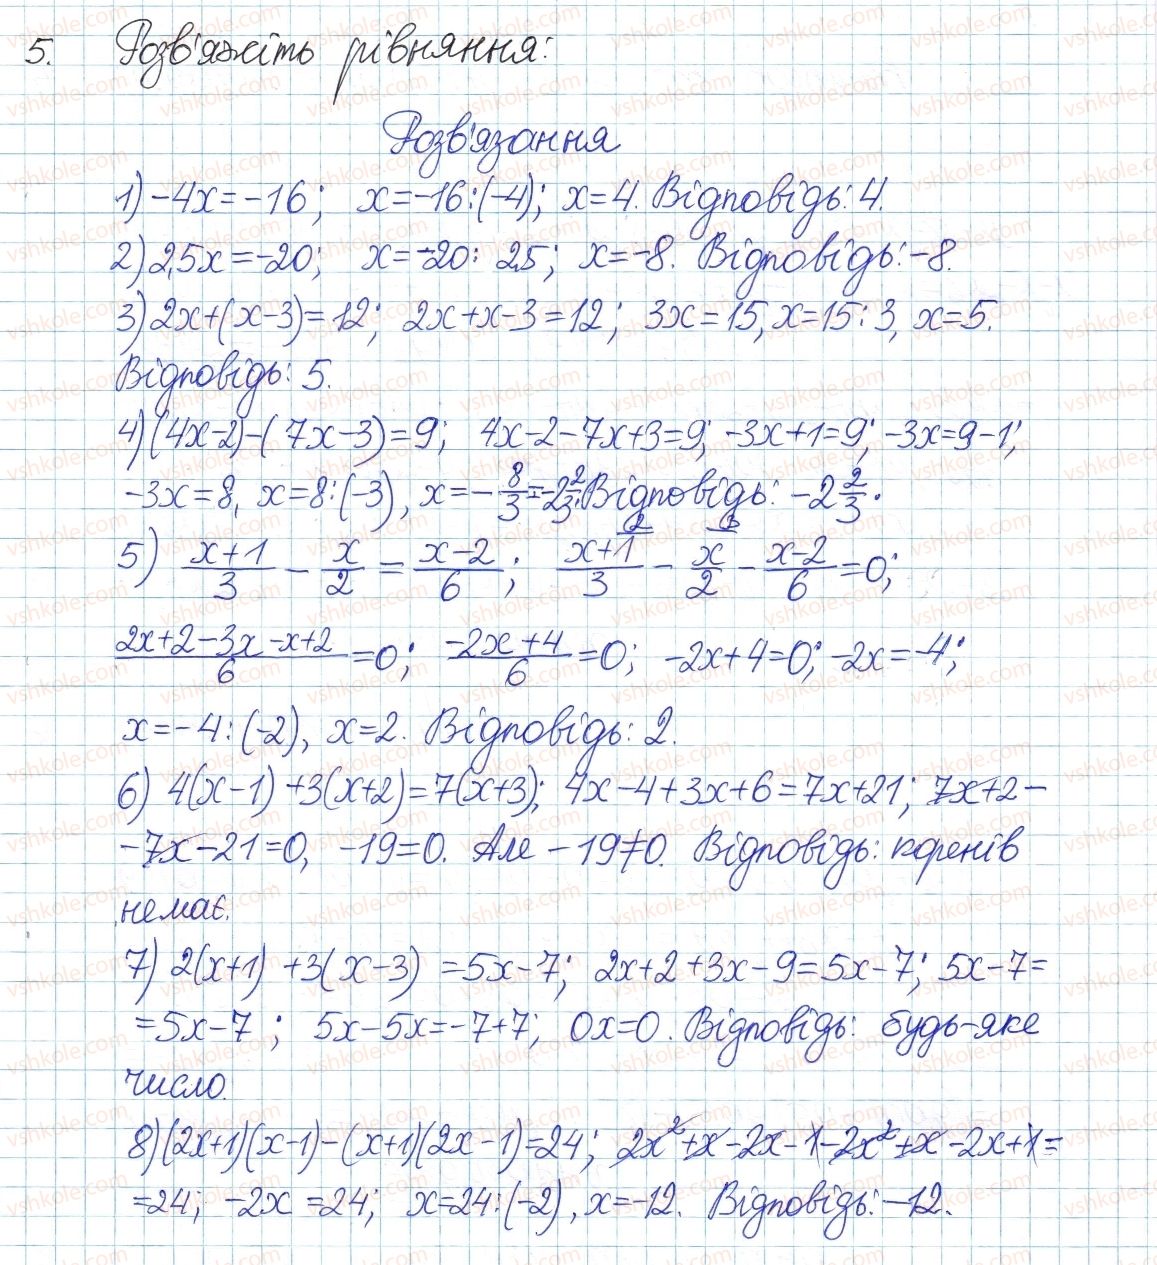 5. Розв'яжіть рівняння:
Розв'язання
1) -4x = -16; x = -16 : (-4); x = 4. Відповідь: 4.
2) 2,5x = -20; x = -20 : 2,5; x = -8. Відповідь: -8.
3) 2x + (x - 3) = 12; 2x + x - 3 = 12; 3x = 15, x = 15 : 3, x = 5.
Відповідь: 5.
4) (4x - 2) - (7x - 3) = 9; 4x - 2 - 7x + 3 = 9; -3x + 1 = 9; -3x = 9 - 1;
-3x = 8, x = 8 : (-3), x = -8/3 = -2 2/3. Відповідь: -2 2/3.
5) (x+1)/3 - x/2 = (x-2)/6; (x+1)/3 - x/2 - (x-2)/6 = 0;
(2x + 2 - 3x - x + 2)/6 = 0; (-2x + 4)/6 = 0; -2x + 4 = 0; -2x = -4;
x = -4 : (-2), x = 2. Відповідь: 2.
6) 4(x - 1) + 3(x + 2) = 7(x + 3); 4x - 4 + 3x + 6 = 7x + 21; 7x + 2 -
- 7x - 21 = 0, -19 = 0. Але -19 ≠ 0. Відповідь: коренів
немає.
7) 2(x + 1) + 3(x - 3) = 5x - 7; 2x + 2 + 3x - 9 = 5x - 7; 5x - 7 =
= 5x - 7; 5x - 5x = -7 + 7; 0x = 0. Відповідь: будь-яке
число.
8) (2x + 1)(x - 1) - (x + 1)(2x - 1) = 24; 2x² + x - 2x - 1 - 2x² + x - 2x + 1 =
= 24; -2x = 24; x = 24 : (-2), x = -12. Відповідь: -12.